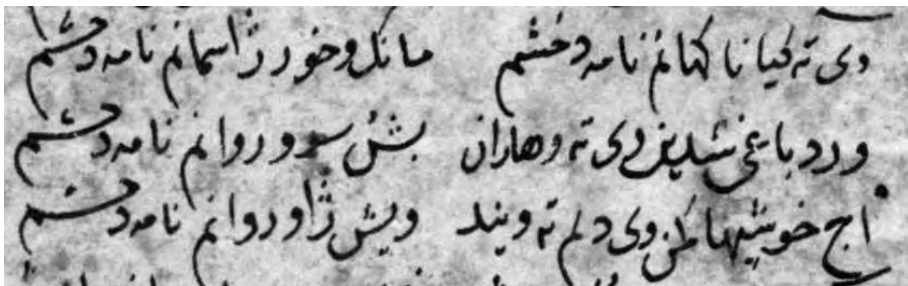 وی ته کیانا کهانم نامه دخشم مانک وخور ژ اسمانم نامه دچشم
ورد باغی شدین وی ته وهاران بشن سوو روانم نامه دچشم
اج خوشیها کمن وی دلم ته ویند ویش ژاوروانم نامه دچشم